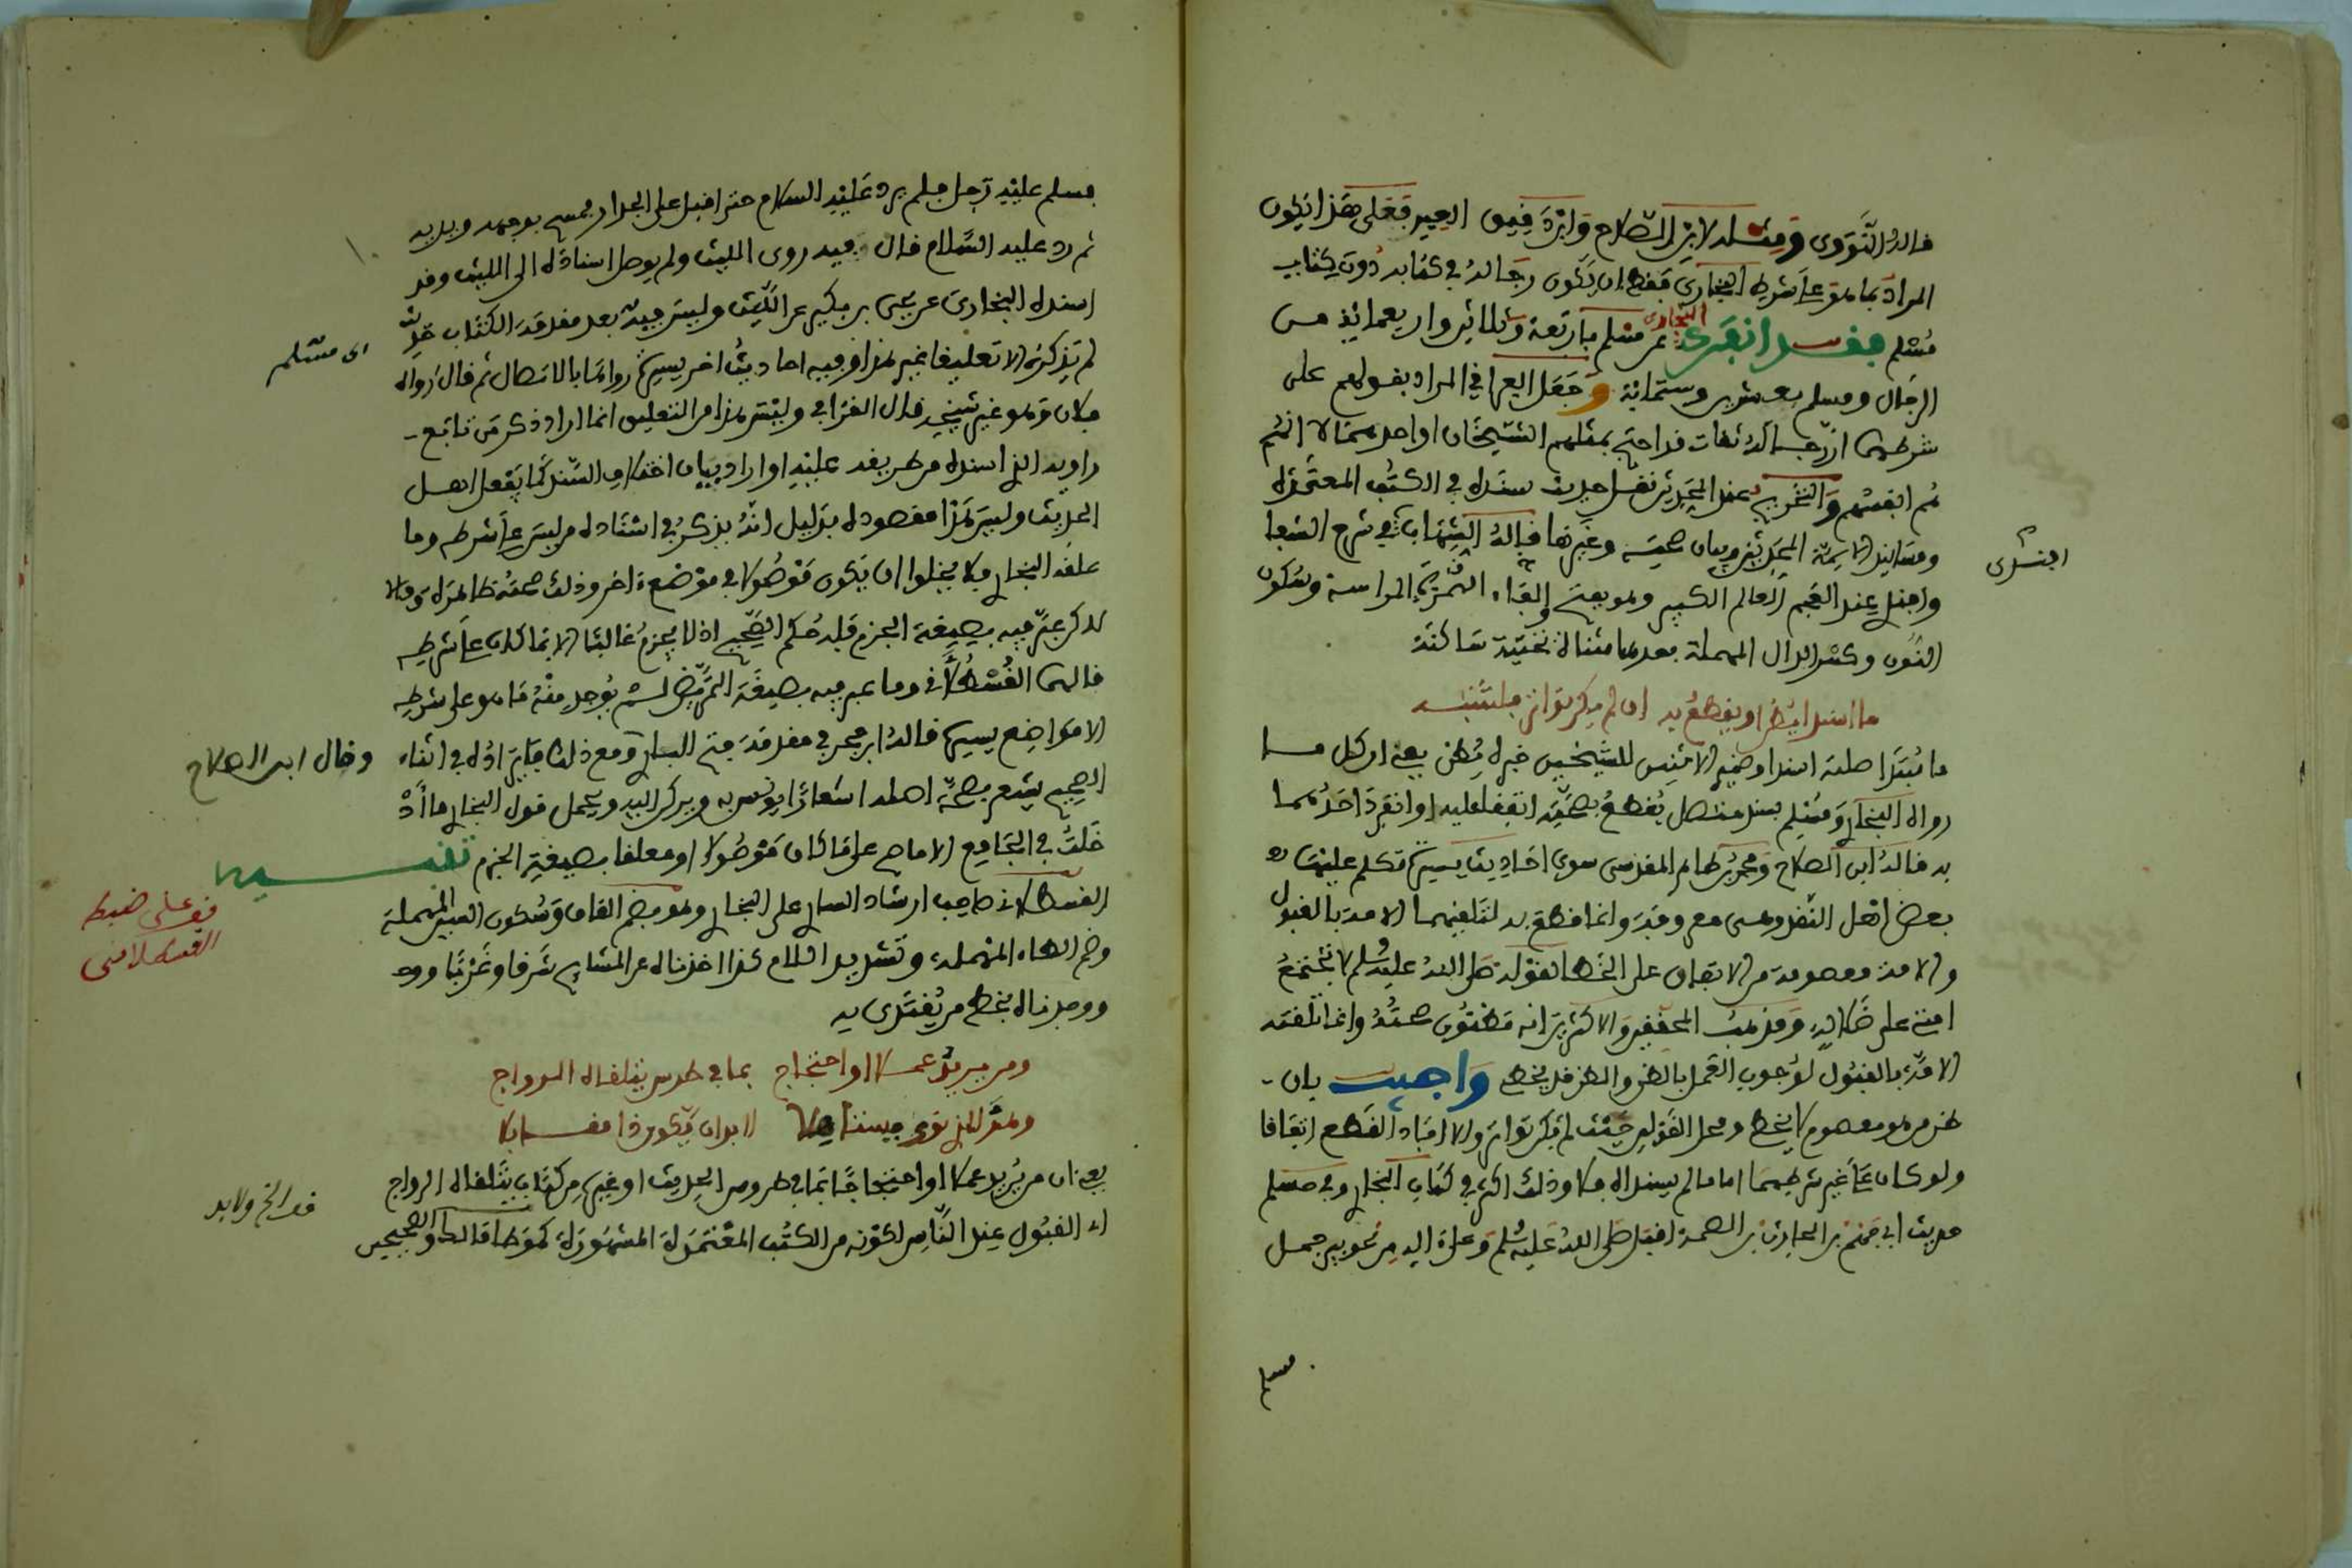 قاله النووي ومثله لابن الصلاح وابن دقيق العيد فعلى هذا يكون
المراد بما هو على شرط البخاري فقط ان يكون رجاله في كتابه دون كتاب
مسلم فقد انفرد البخاري عن مسلم باربعة وثلاثين واربعمائة من
الرجال ومسلم بعشرين وستمائة وجعل العراقي المراد بقولهم على
شرطهما ان رجاله ثقات قد احتج بمثلهم الشيخان او احدهما لا انهم
هم انفسهم والتخريج عند المحدثين نقل حديث بسنده في الكتب المعتمدة
ومسانيد الايمة المحدثين وبيان صحته وغيرها قاله الشهاب في شرح الشفا
القنطري
والجهبذ عند العجم العالم الكبير وهو بفتح القاء المراسة وسكون
النون وكسر الدال المهملة بعدها مثناة تحتية ساكنة
ما اسند ايضا ويقطع به ان لم يكن تواتر فلتنتبه
ما مبتدا صلته اسندا وضمير الاثنين للشيخين خبره يظن يعني ان كل ما
رواه البخاري ومسلم بسند متصل يقطع بصحته اتفقا عليه او انفرد احدهما
به قاله ابن الصلاح ومحمد بن طاهر المقدسي سوى احاديث يسيرة تكلم عليها
بعض اهل النقد وهي معروفة وانما قطع به لتلقيهما الامة بالقبول
والامة معصومة من الاتفاق على الخطا لقوله صلى الله عليه وسلم لا تجتمع
امتي على ضلالة ومذهب المحققين والاكثرين انه مظنون صحته وانما تلقته
الامة بالقبول لوجوب العمل بالظن والظن قد يخطئ واجيب بان
ظن من هو معصوم لا يخطئ ومحل القولين حيث لم يكن تواتر والا افاد القطع اتفاقا
ولو كان على غير شرطهما اما ما لم يسنداه فلا وذلك اكثر في كتاب البخاري وفي مسلم
حديث ابي جهيم بن الحارث بن الصمة اقبل صلى الله عليه وسلم وعلى اله من نحو بير جمل
مسلم
فسلم عليه رجل فلم يرد عليه السلام حتى اقبل على الجدار فمسح بوجهه ويديه
ثم رد عليه السلام قال فيه روى الليث ولم يوصل اسناده الى الليث وقد
اسنده البخاري عن يحيى بن بكير عن الليث وليس فيه بعد مقدمة الكتاب حديث
لم يذكره الا تعليقا غير هذا وفيه احاديث اخر يسيرة رواها بالاتصال ثم قال رواه
اى مسلم
فلان وهو غير شيخه قال العراقي وليس هذا من التعليق انما اراد ذكر من تابع
راويه الذي اسنده من طريقه عليه او اراد بيان اختلاف السند كما يفعل اهل
الحديث وليس هذا مقصوده بدليل انه يذكر في اسناده من ليس على شرطه وما
علقه البخاري فلا يخلوا ان يكون موصولا في موضع اخر وذلك صحته ظاهرة والا
لاكن عبر فيه بصيغة الجزم فله حكم الصحيح اذ لا يجزم غالبا الا بما كان على شرطه
قالهما القسطلاني وما عبر فيه بصيغة التمريض لم يوجد منه ما هو على شرطه
الا مواضع يسيرة قاله ابن حجر في مقدمة فتح الباري ومع ذلك فايراده في اثناء
وقال ابن الصلاح
الصحيح يشعر بصحة اصله اشعارا يونس به ويركن اليه ويحمل قول البخاري ما اد
خلت في الجامع الا ما صح على ما كان موصولا او معلقا بصيغة الجزم تنبيه
القسطلاني صاحب ارشاد الساري على البخاري وهو بضم القاف وسكون السين المهملة
قف على ضبط
القسطلاني
وضم الطاء المهملة وتشديد اللام كذا اخذناه عن المشايخ شرقا وغربا
ووجدناه بخط من يقتدى به
ومن يريد عملا او احتجاج بما في طرس يتلقاه الرواج
وهو للذي نوى فيستاهلا لا بد ان يكون ذا مقابلا
يعني ان من يريد عملا او احتجاجا بما في طروس الحديث او غيره من كتاب يتلقاه الرواج
قف الخ ولابد
اى القبول عند الناس لكونه من الكتب المعتمدة المشهورة كموطا مالك والصحيحين